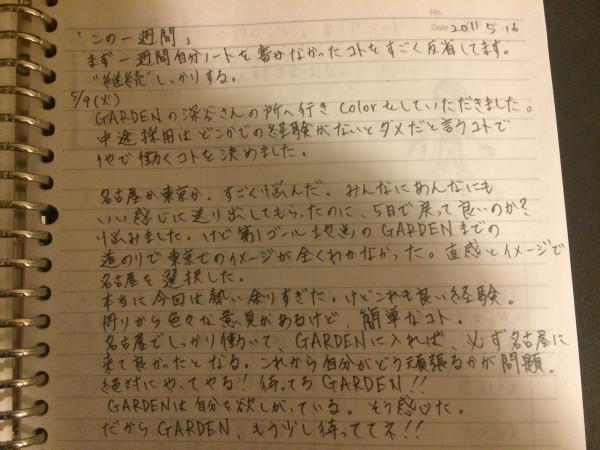 No.
Date 2011 5 16
「この一週間」
まず一週間自分ノートを書かなかったコトをすごく反省してます。
"継続"しっかりする。
5/9(火)
GARDENの深谷さんの所へ行きColorをしていただきました。
中途採用はどこかでの経験がないとダメだと言うコトで
他で働くコトを決めました。
名古屋か東京か。すごく悩んだ。みんなにあんなにも
いい感じに送り出してもらったのに、5日で戻って良いのか?
悩みました。けど第1ゴール地点のGARDENまでの
道のりで東京でのイメージが全くわかなかった。直感とイメージで
名古屋を選択した。
本当に今回は熱い余りすぎた。けどこれも良い経験。
周りから色々な意見があるけど、簡単なコト。
名古屋でしっかり働いて、GARDENに入れば、必ず名古屋に
来て良かったとなる。これから自分がどう頑張るかが問題。
絶対にやってやる!待ってろGARDEN!!
GARDENは自分を欲しがっている。そう感じた。
だからGARDEN、もう少し待っててネ!!